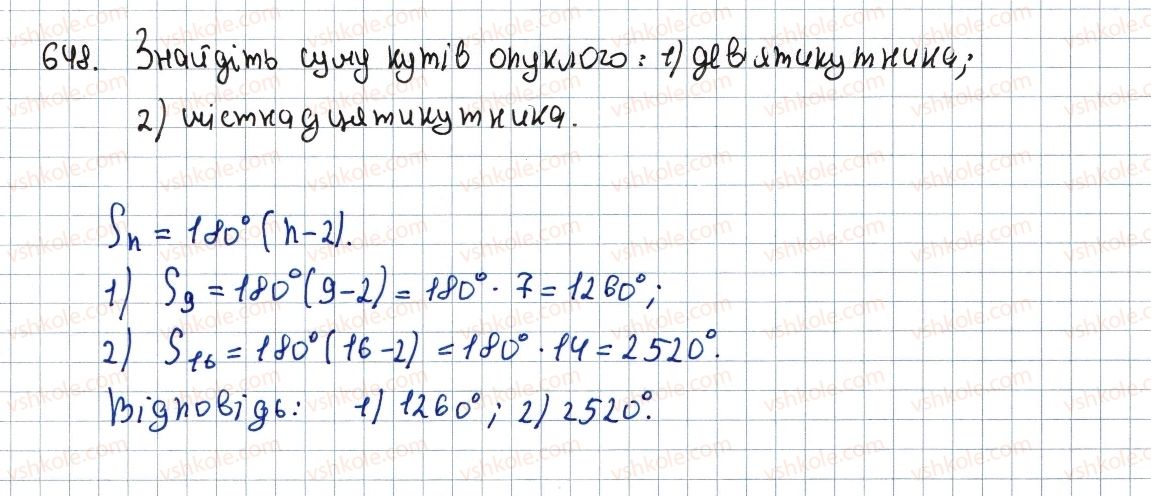 648. Знайдіть суму кутів опуклого: 1) дев'ятикутника;
2) шістнадцятикутника.
Sₙ = 180°(n-2).
1) S₉ = 180°(9-2) = 180° · 7 = 1260°;
2) S₁₆ = 180°(16-2) = 180° · 14 = 2520°.
Відповідь: 1) 1260°; 2) 2520°.